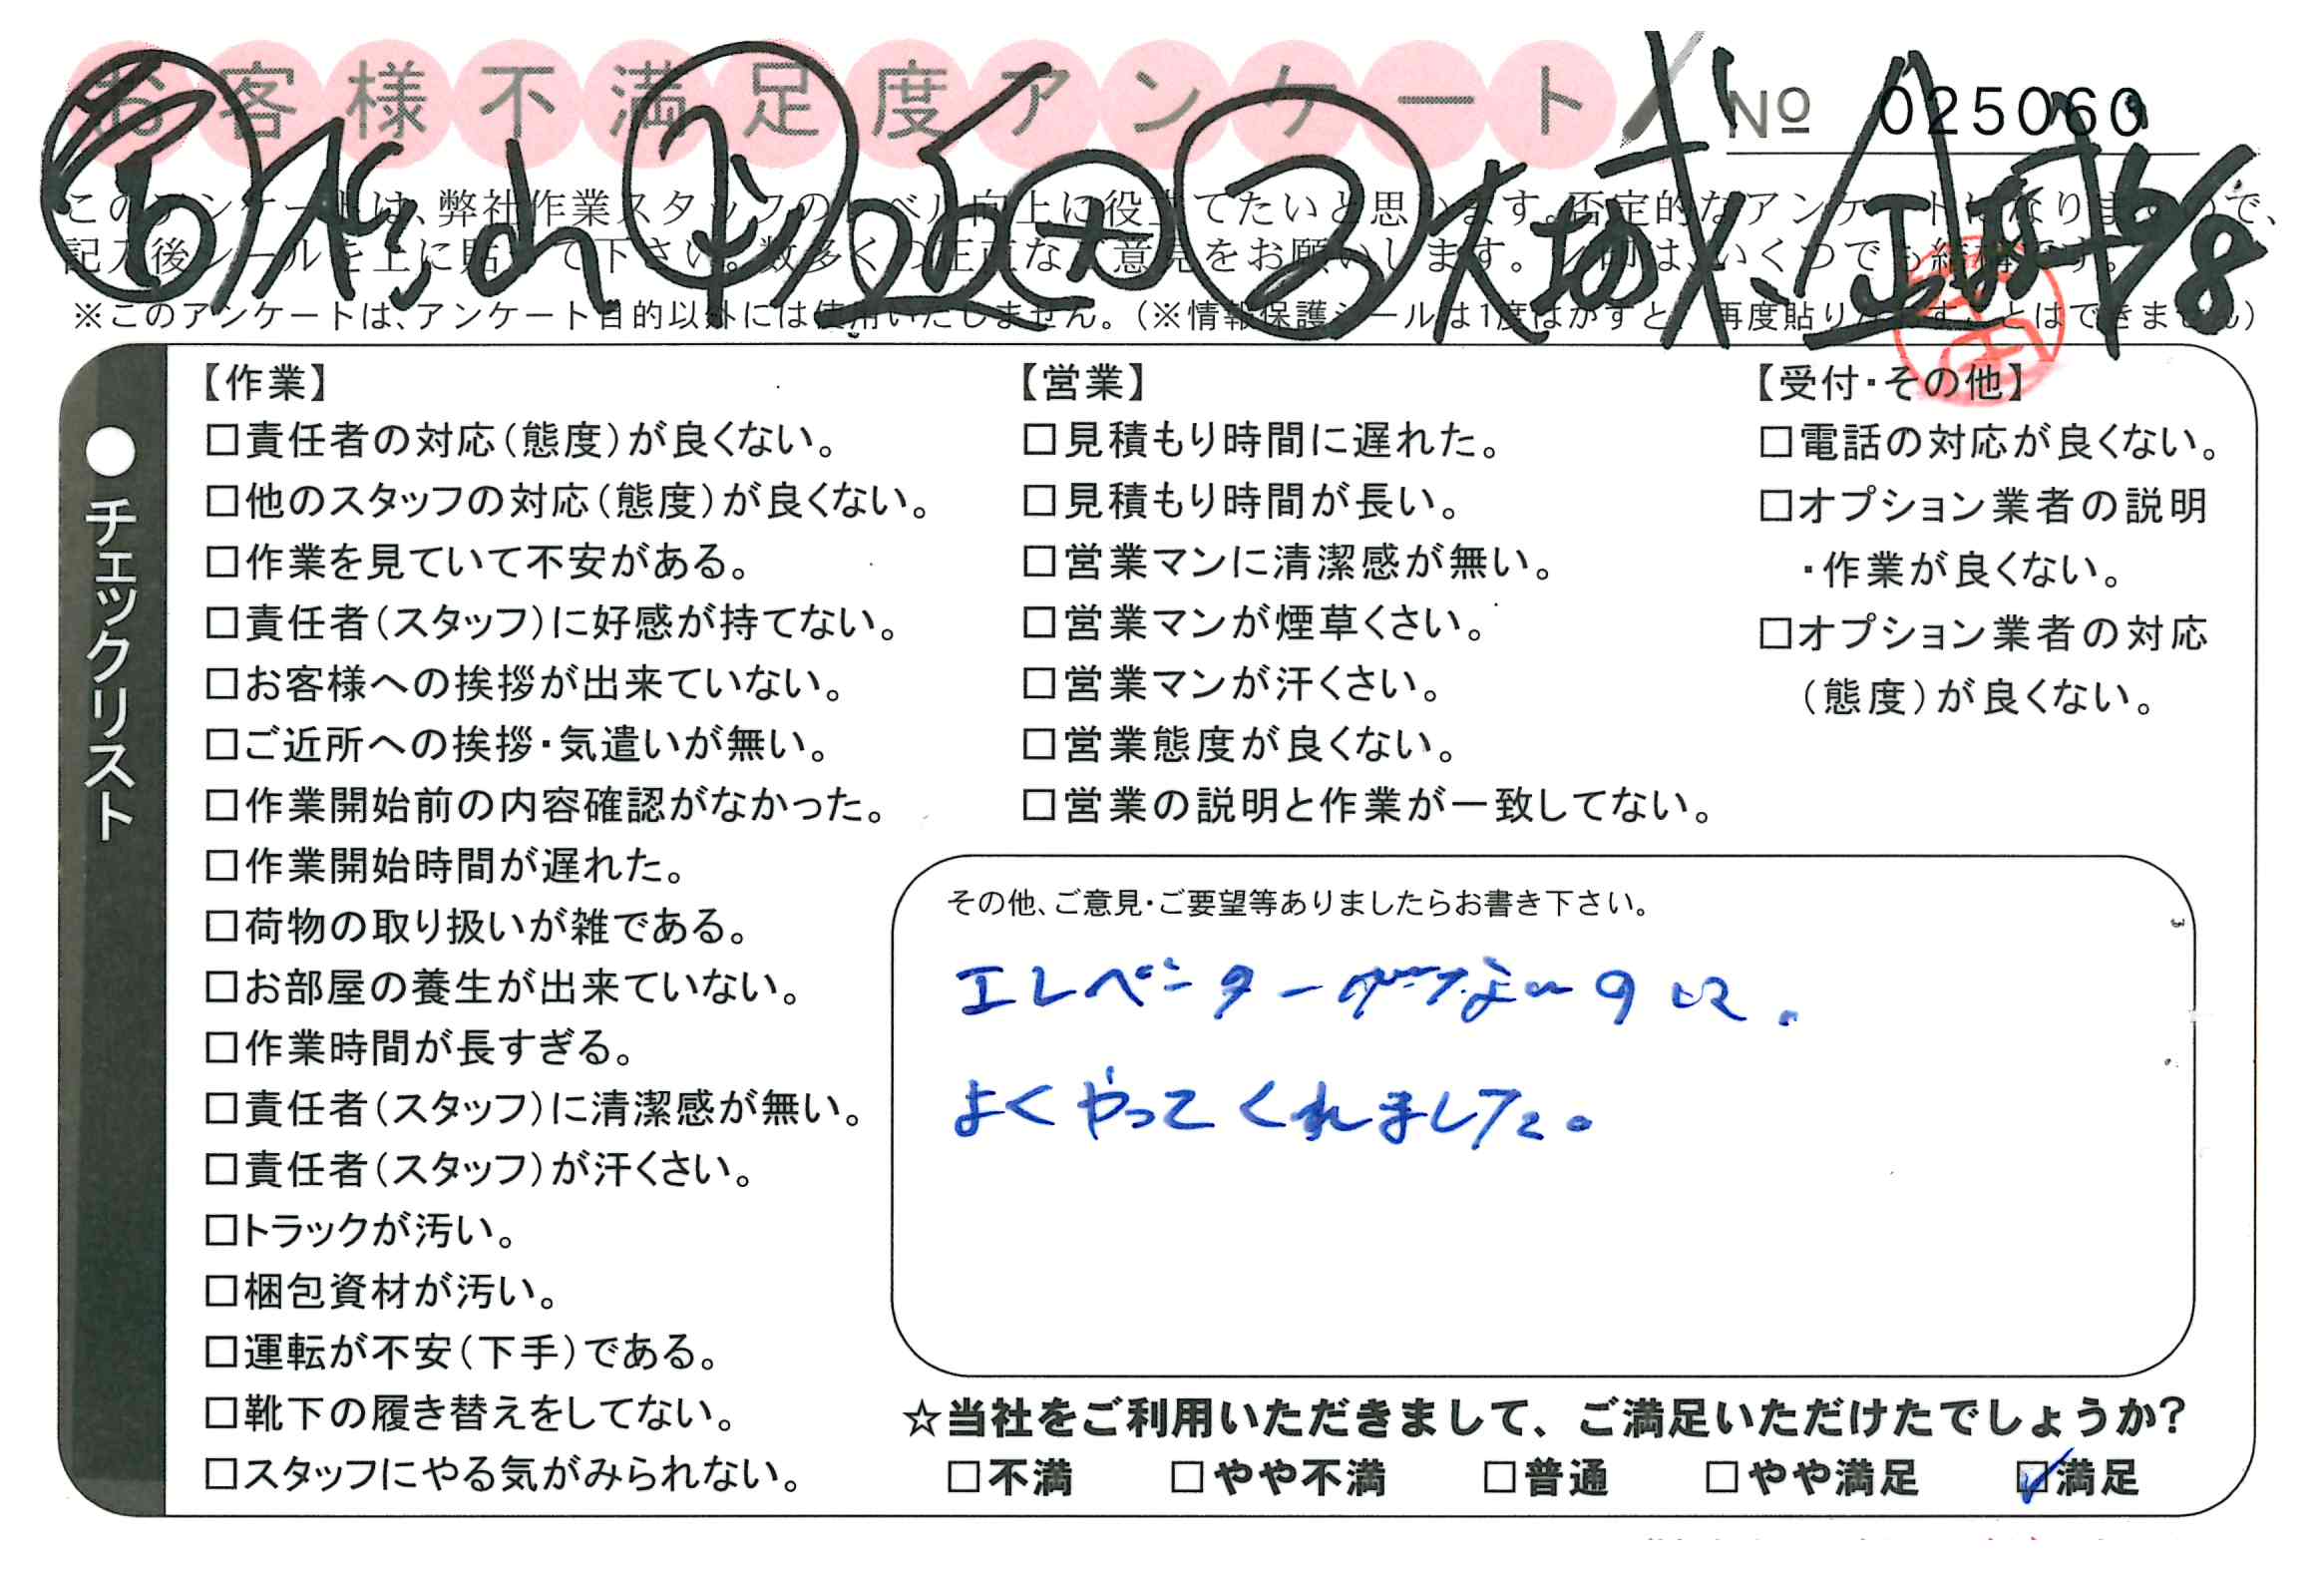 お客様不満足度アンケート
No 025060
このアンケートは、弊社作業スタッフのレベル向上に役立てたいと思います。否定的なアンケートになりますので、
記入後シールを上に貼って下さい。数多くの正直なご意見をお願いします。レ印は、いくつでも結構です。
※このアンケートは、アンケート目的以外には使用いたしません。(※情報保護シールは1度はがすと、再度貼りなおすことはできません)
6/8
●チェックリスト
【作業】
□責任者の対応(態度)が良くない。
□他のスタッフの対応(態度)が良くない。
□作業を見ていて不安がある。
□責任者(スタッフ)に好感が持てない。
□お客様への挨拶が出来ていない。
□ご近所への挨拶・気遣いが無い。
□作業開始前の内容確認がなかった。
□作業開始時間が遅れた。
□荷物の取り扱いが雑である。
□お部屋の養生が出来ていない。
□作業時間が長すぎる。
□責任者(スタッフ)に清潔感が無い。
□責任者(スタッフ)が汗くさい。
□トラックが汚い。
□梱包資材が汚い。
□運転が不安(下手)である。
□靴下の履き替えをしてない。
□スタッフにやる気がみられない。
【営業】
□見積もり時間に遅れた。
□見積もり時間が長い。
□営業マンに清潔感が無い。
□営業マンが煙草くさい。
□営業マンが汗くさい。
□営業態度が良くない。
□営業の説明と作業が一致してない。
【受付・その他】
□電話の対応が良くない。
□オプション業者の説明
・作業が良くない。
□オプション業者の対応
(態度)が良くない。
その他、ご意見・ご要望等ありましたらお書き下さい。
エレベーターがないのに、
よくやってくれました。
☆当社をご利用いただきまして、ご満足いただけたでしょうか?
□不満 □やや不満 □普通 □やや満足 ☑満足